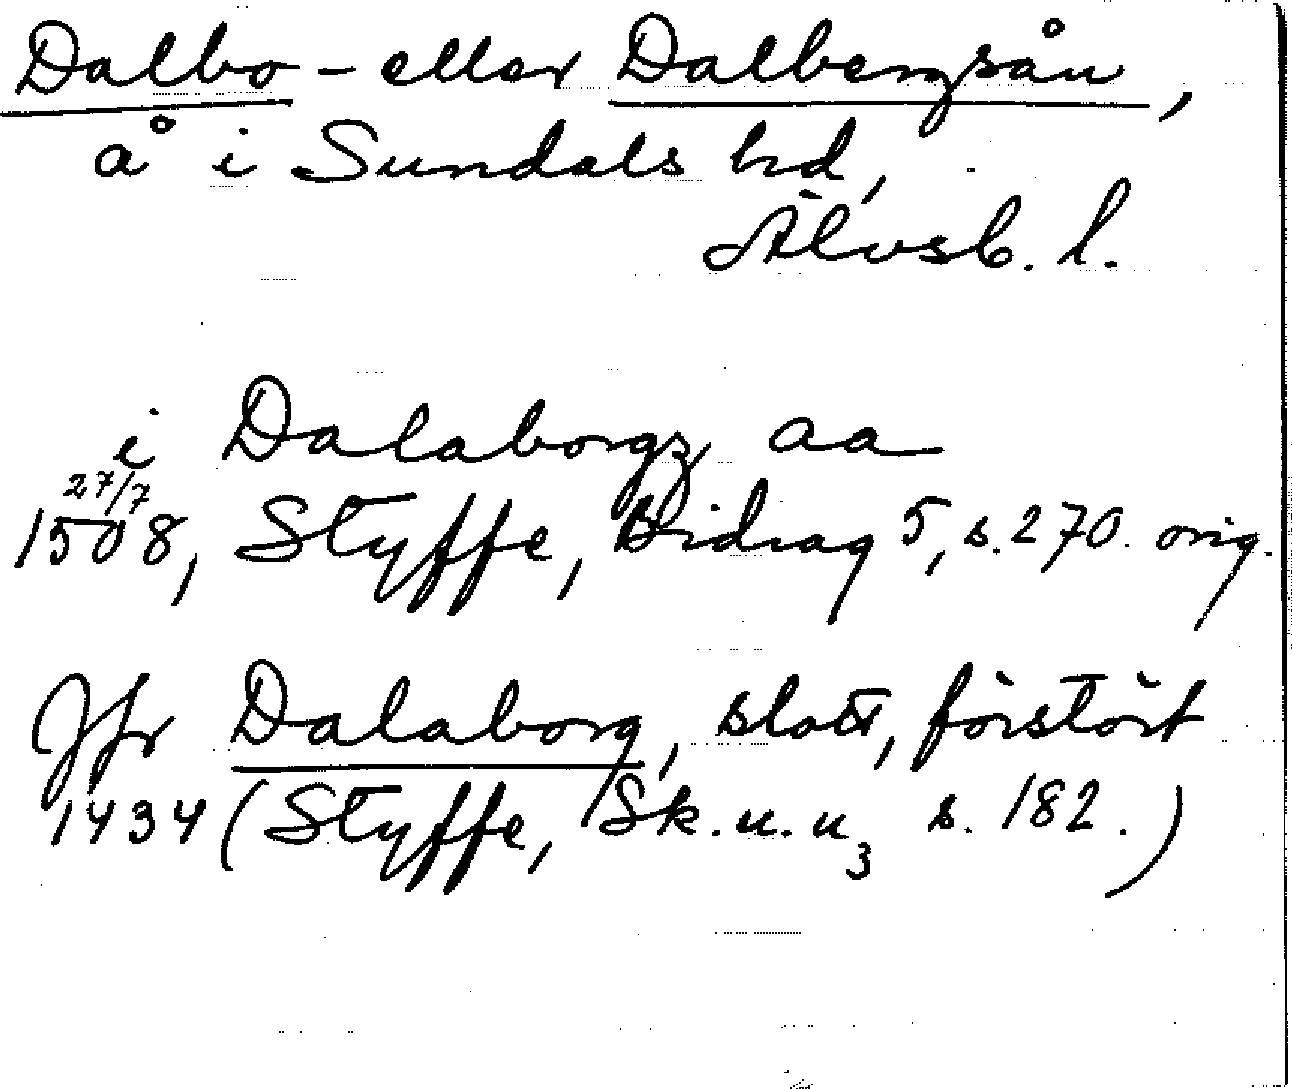 Dalbo- eller Dalbergsån,
å i Sundals hd,
Älvsb. l.
i Dalaborgz aa
27/7
1508, Styffe, Bidrag 5, s. 270. orig.
Jfr Dalaborg, slott, förstört
1434 (Styffe, Sk. u. u3 s. 182.)